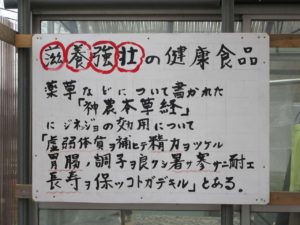 滋養強壮の健康食品
薬草などについて書かれた
「神農本草経」
にジネンジョの効用について
「虚弱体質ヲ補ヒ精力ヲツケル
胃腸ノ調子ヲ良クシ暑サ寒サニ耐エ
長寿ヲ保ツコトガデキル」とある。